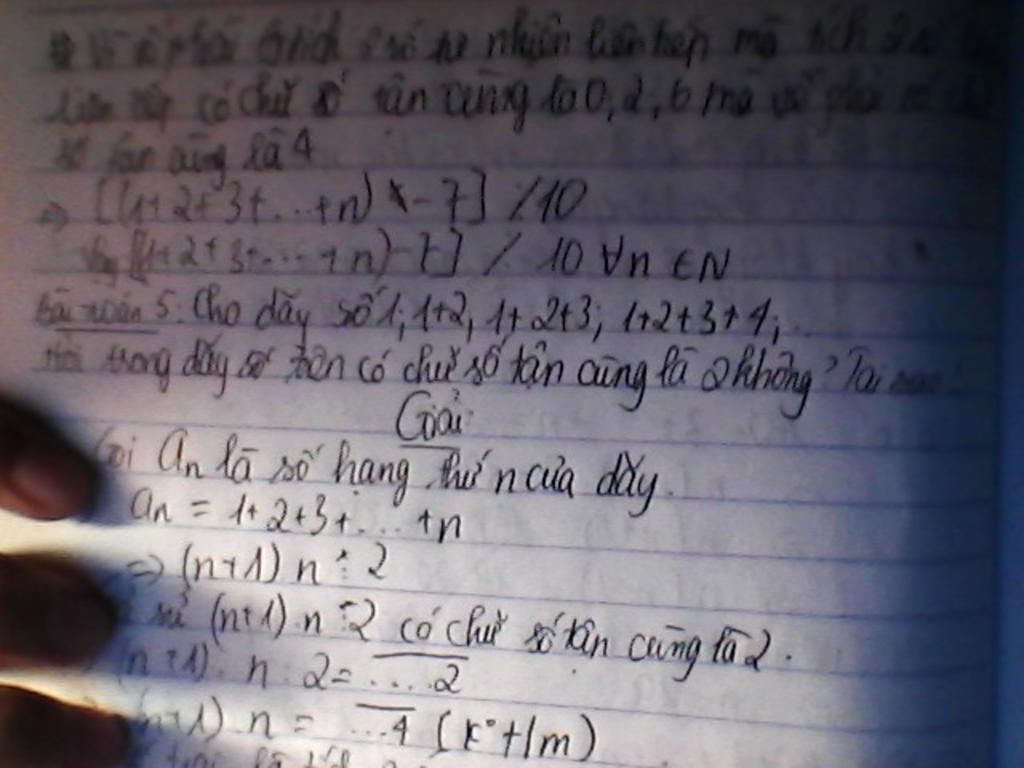 Vì vế phải là tích 2 số tự nhiên liên tiếp mà tích 2 số
liên tiếp có chữ số tận cùng là 0, 2, 6 mà vế phải có chữ
số tận cùng là 4
=> [(1+2+3+...+n) - 7] ⋮̸ 10
Vậy [(1+2+3+...+n)-7] ⋮̸ 10 ∀n ∈ N
Bài toán 5: Cho dãy số 1; 1+2; 1+2+3; 1+2+3+4; ...
Hỏi trong dãy số trên có chữ số tận cùng là 2 không? Tại sao
Giải:
Gọi an là số hạng thứ n của dãy.
an = 1+2+3+...+n
=> (n+1) n : 2
sử (n+1).n :2 có chữ số tận cùng là 2.
(n+1). n : 2 = ...2
(n+1) n = ...4 (k°+/m)